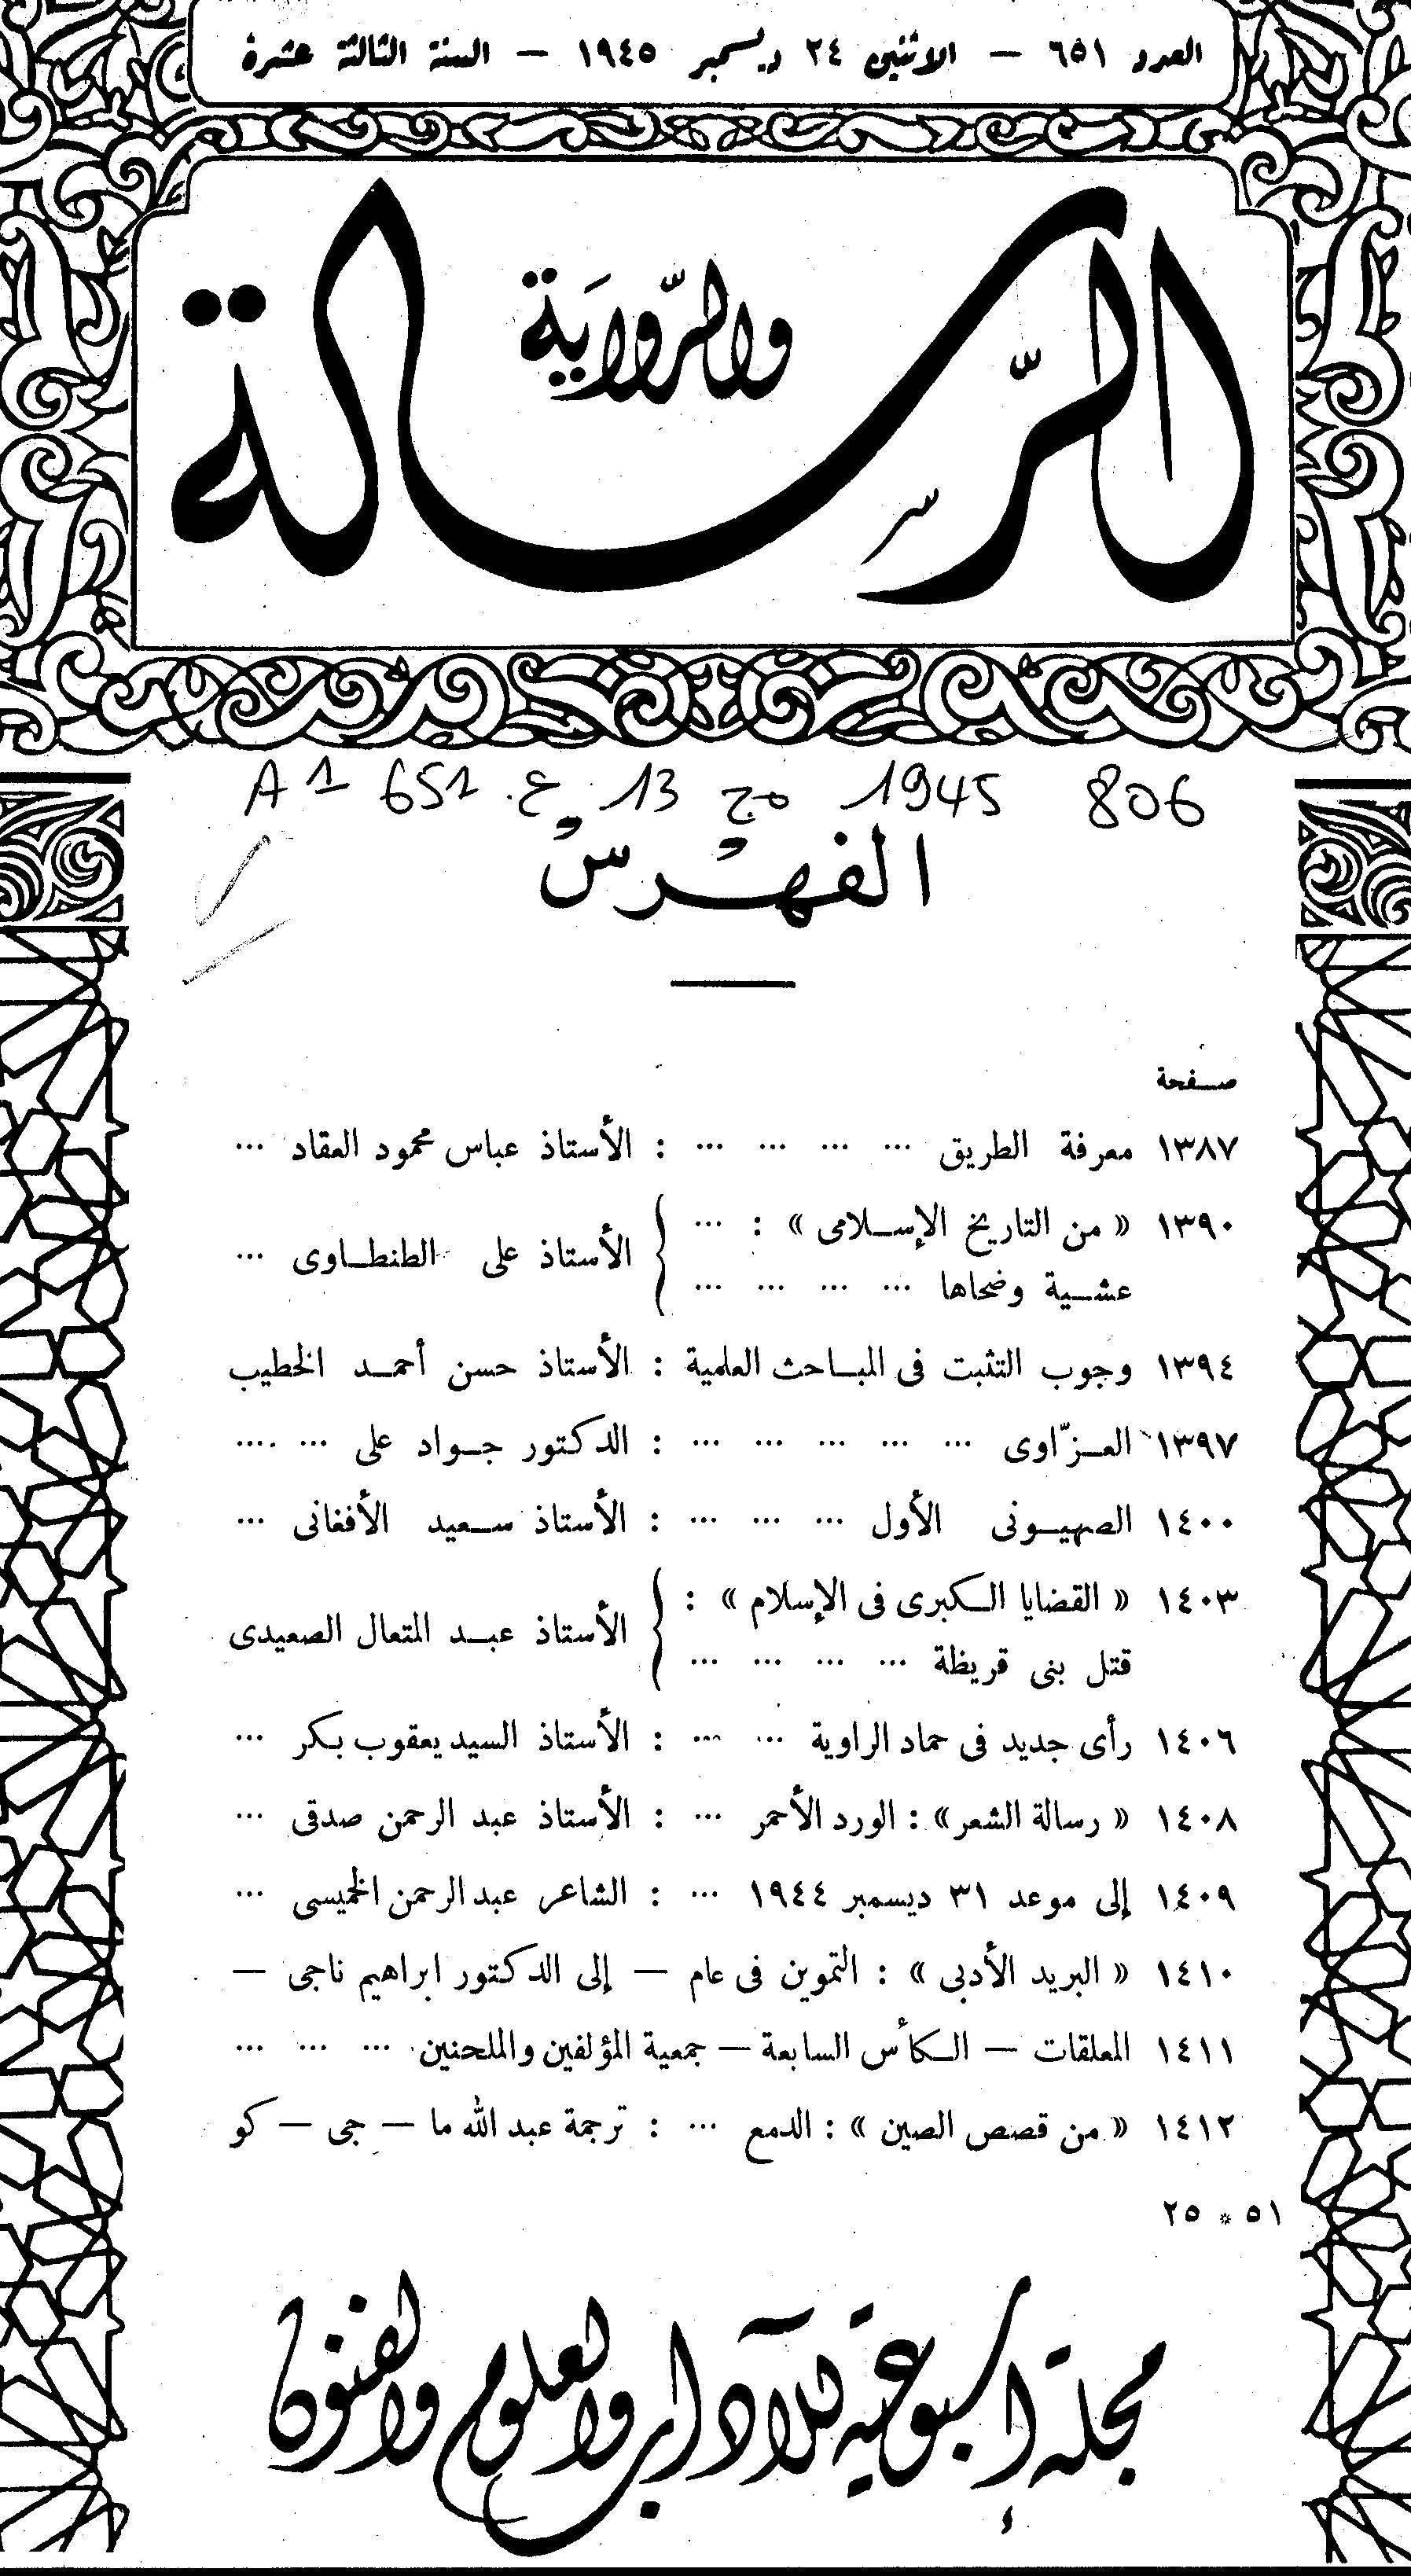 العدد ٦٥١ — الاثنين ٢٤ ديسمبر ١٩٤٥ — السنة الثالثة عشرة
الرّسالة
والرّوايَة
A1 651 ع. 13 مج 1945 806
الفهْرسْ
صفحة
١٣٨٧ معرفة الطريق ... ... ... ... : الأستاذ عباس محمود العقاد ...
١٣٩٠ « من التاريخ الإسلامى » : ... } الأستاذ على الطنطاوى ...
عشية وضحاها ... ... ... ...
١٣٩٤ وجوب التثبت فى المباحث العلمية : الأستاذ حسن أحمد الخطيب
١٣٩٧ العزّاوى ... ... ... ... ... : الدكتور جواد على ... ....
١٤٠٠ الصهيونى الأول ... ... ... : الأستاذ سعيد الأفغانى ...
١٤٠٣ « القضايا الكبرى فى الإسلام » : } الأستاذ عبد المتعال الصعيدى
قتل بنى قريظة ... ... ... ...
١٤٠٦ رأى جديد فى حماد الراوية ... ... : الأستاذ السيد يعقوب بكر ...
١٤٠٨ « رسالة الشعر» : الورد الأحمر ... : الأستاذ عبد الرحمن صدقى ...
١٤٠٩ إلى موعد ٣١ ديسمبر ١٩٤٤ ... : الشاعر عبد الرحمن الخميسى ...
١٤١٠ « البريد الأدبى » : التموين فى عام — إلى الدكتور ابراهيم ناجى —
١٤١١ المعلقات — الكأس السابعة — جمعية المؤلفين والملحنين ... ... ...
١٤١٢ « من قصص الصين » : الدمع ... : ترجمة عبد الله ما — جى — كو
٥١ * ٢٥
مجلة إسبوعية للآداب والعلوم والفنون